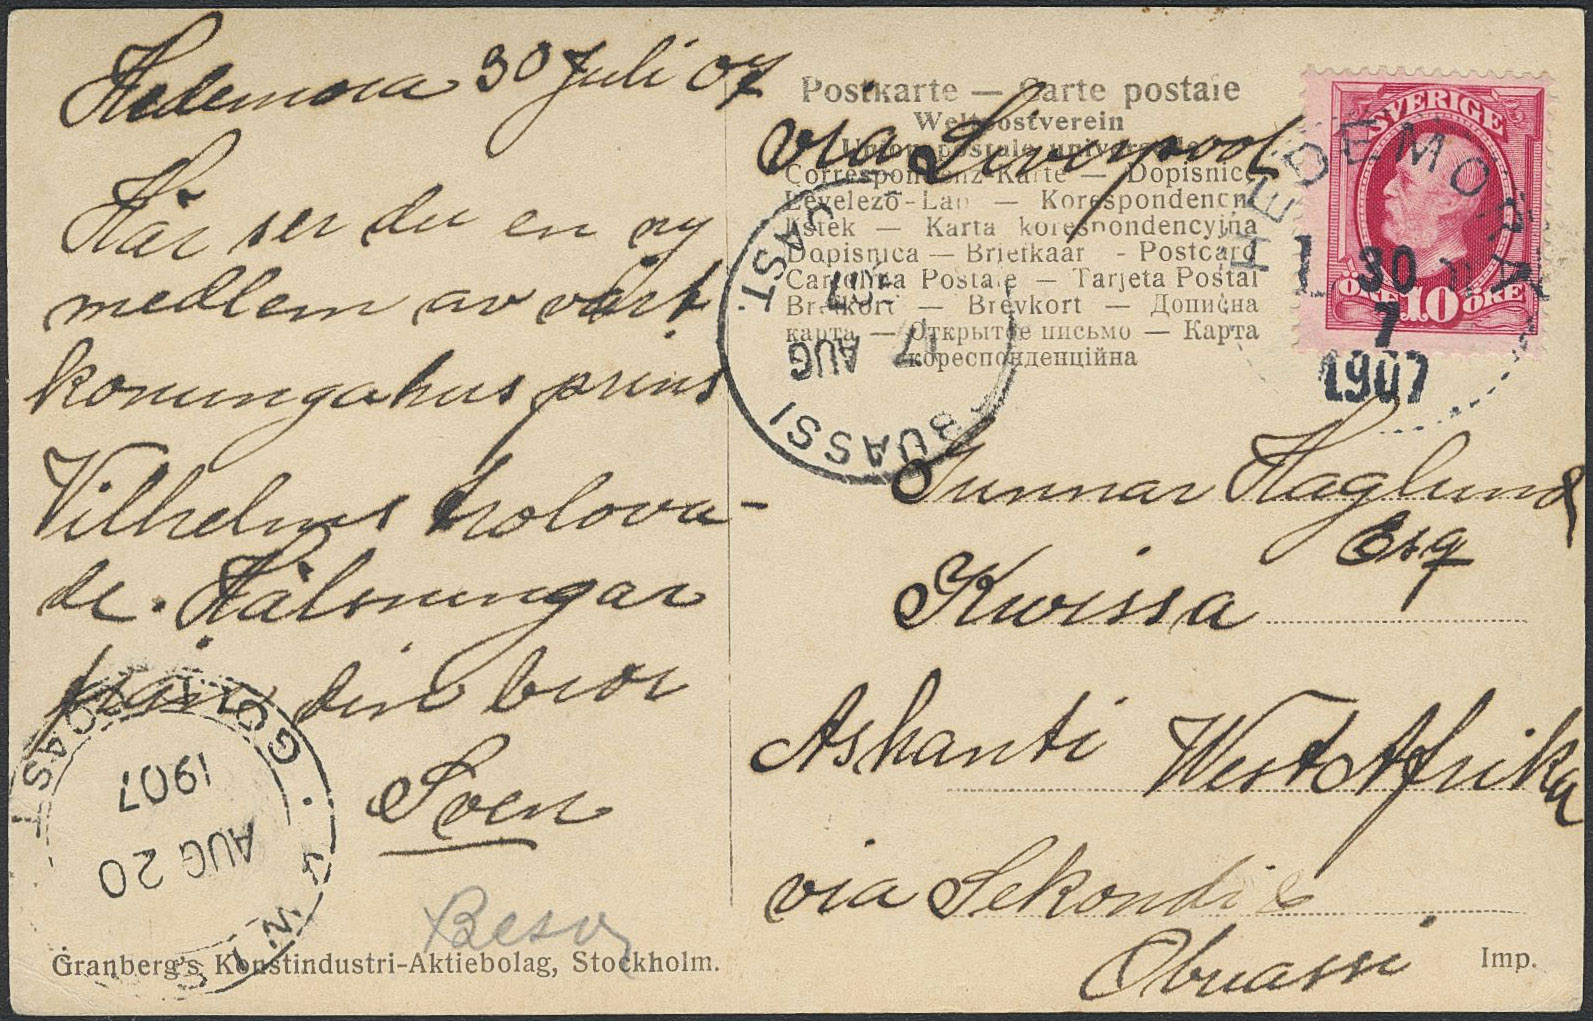 Hedemora 30 Juli 07
Här ser du en ny
medlem av vårt
konungahus prins
Vilhelms trolova-
de. Hälsningar
från din bror
Sven
Besv
Granberg's Konstindustri-Aktiebolag, Stockholm.
Postkarte — Carte postale
Weltpostverein
Union postale universelle
Correspondenz-Karte — Dopisnice
Levelező-Lap — Korespondencni
listek — Karta korespondencyjna
Dopisnica — Briefkaart - Postcard
Cartolina Postale — Tarjeta Postal
Brefkort — Brevkort — Дописна
карта — Открытое письмо — Карта
кореспонденцiйна
via Liverpool
SVERIGE
ÖRE 10 ÖRE
HEDEMORA
30
7
1907
OBUASSI
17 AUG
07
G. COAST.
Gunnar Haglund
Esq
Kwissa
Ashanti West Afrika
via Sekondi &
Obuassi
Imp.
GOLD COAST
AUG 20
1907